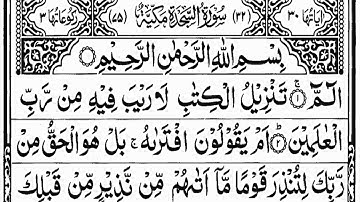 اٰیَاتُهَا ٣٠ (٣٢) سُوْرَةُ السَّجْدَةِ مَكِّیَّةٌ (٧٥) رُكُوْعَاتُهَا ٣
بِسْمِ اللّٰهِ الرَّحْمٰنِ الرَّحِیْمِ
الٓمّٓ ۚ﴿١﴾ تَنْزِیْلُ الْكِتٰبِ لَا رَیْبَ فِیْهِ مِنْ رَّبِّ
الْعٰلَمِیْنَ ؕ﴿٢﴾ اَمْ یَقُوْلُوْنَ افْتَرٰىهُ ۚ بَلْ هُوَ الْحَقُّ مِنْ
رَّبِّكَ لِتُنْذِرَ قَوْمًا مَّاۤ اَتٰىهُمْ مِّنْ نَّذِیْرٍ مِّنْ قَبْلِكَ